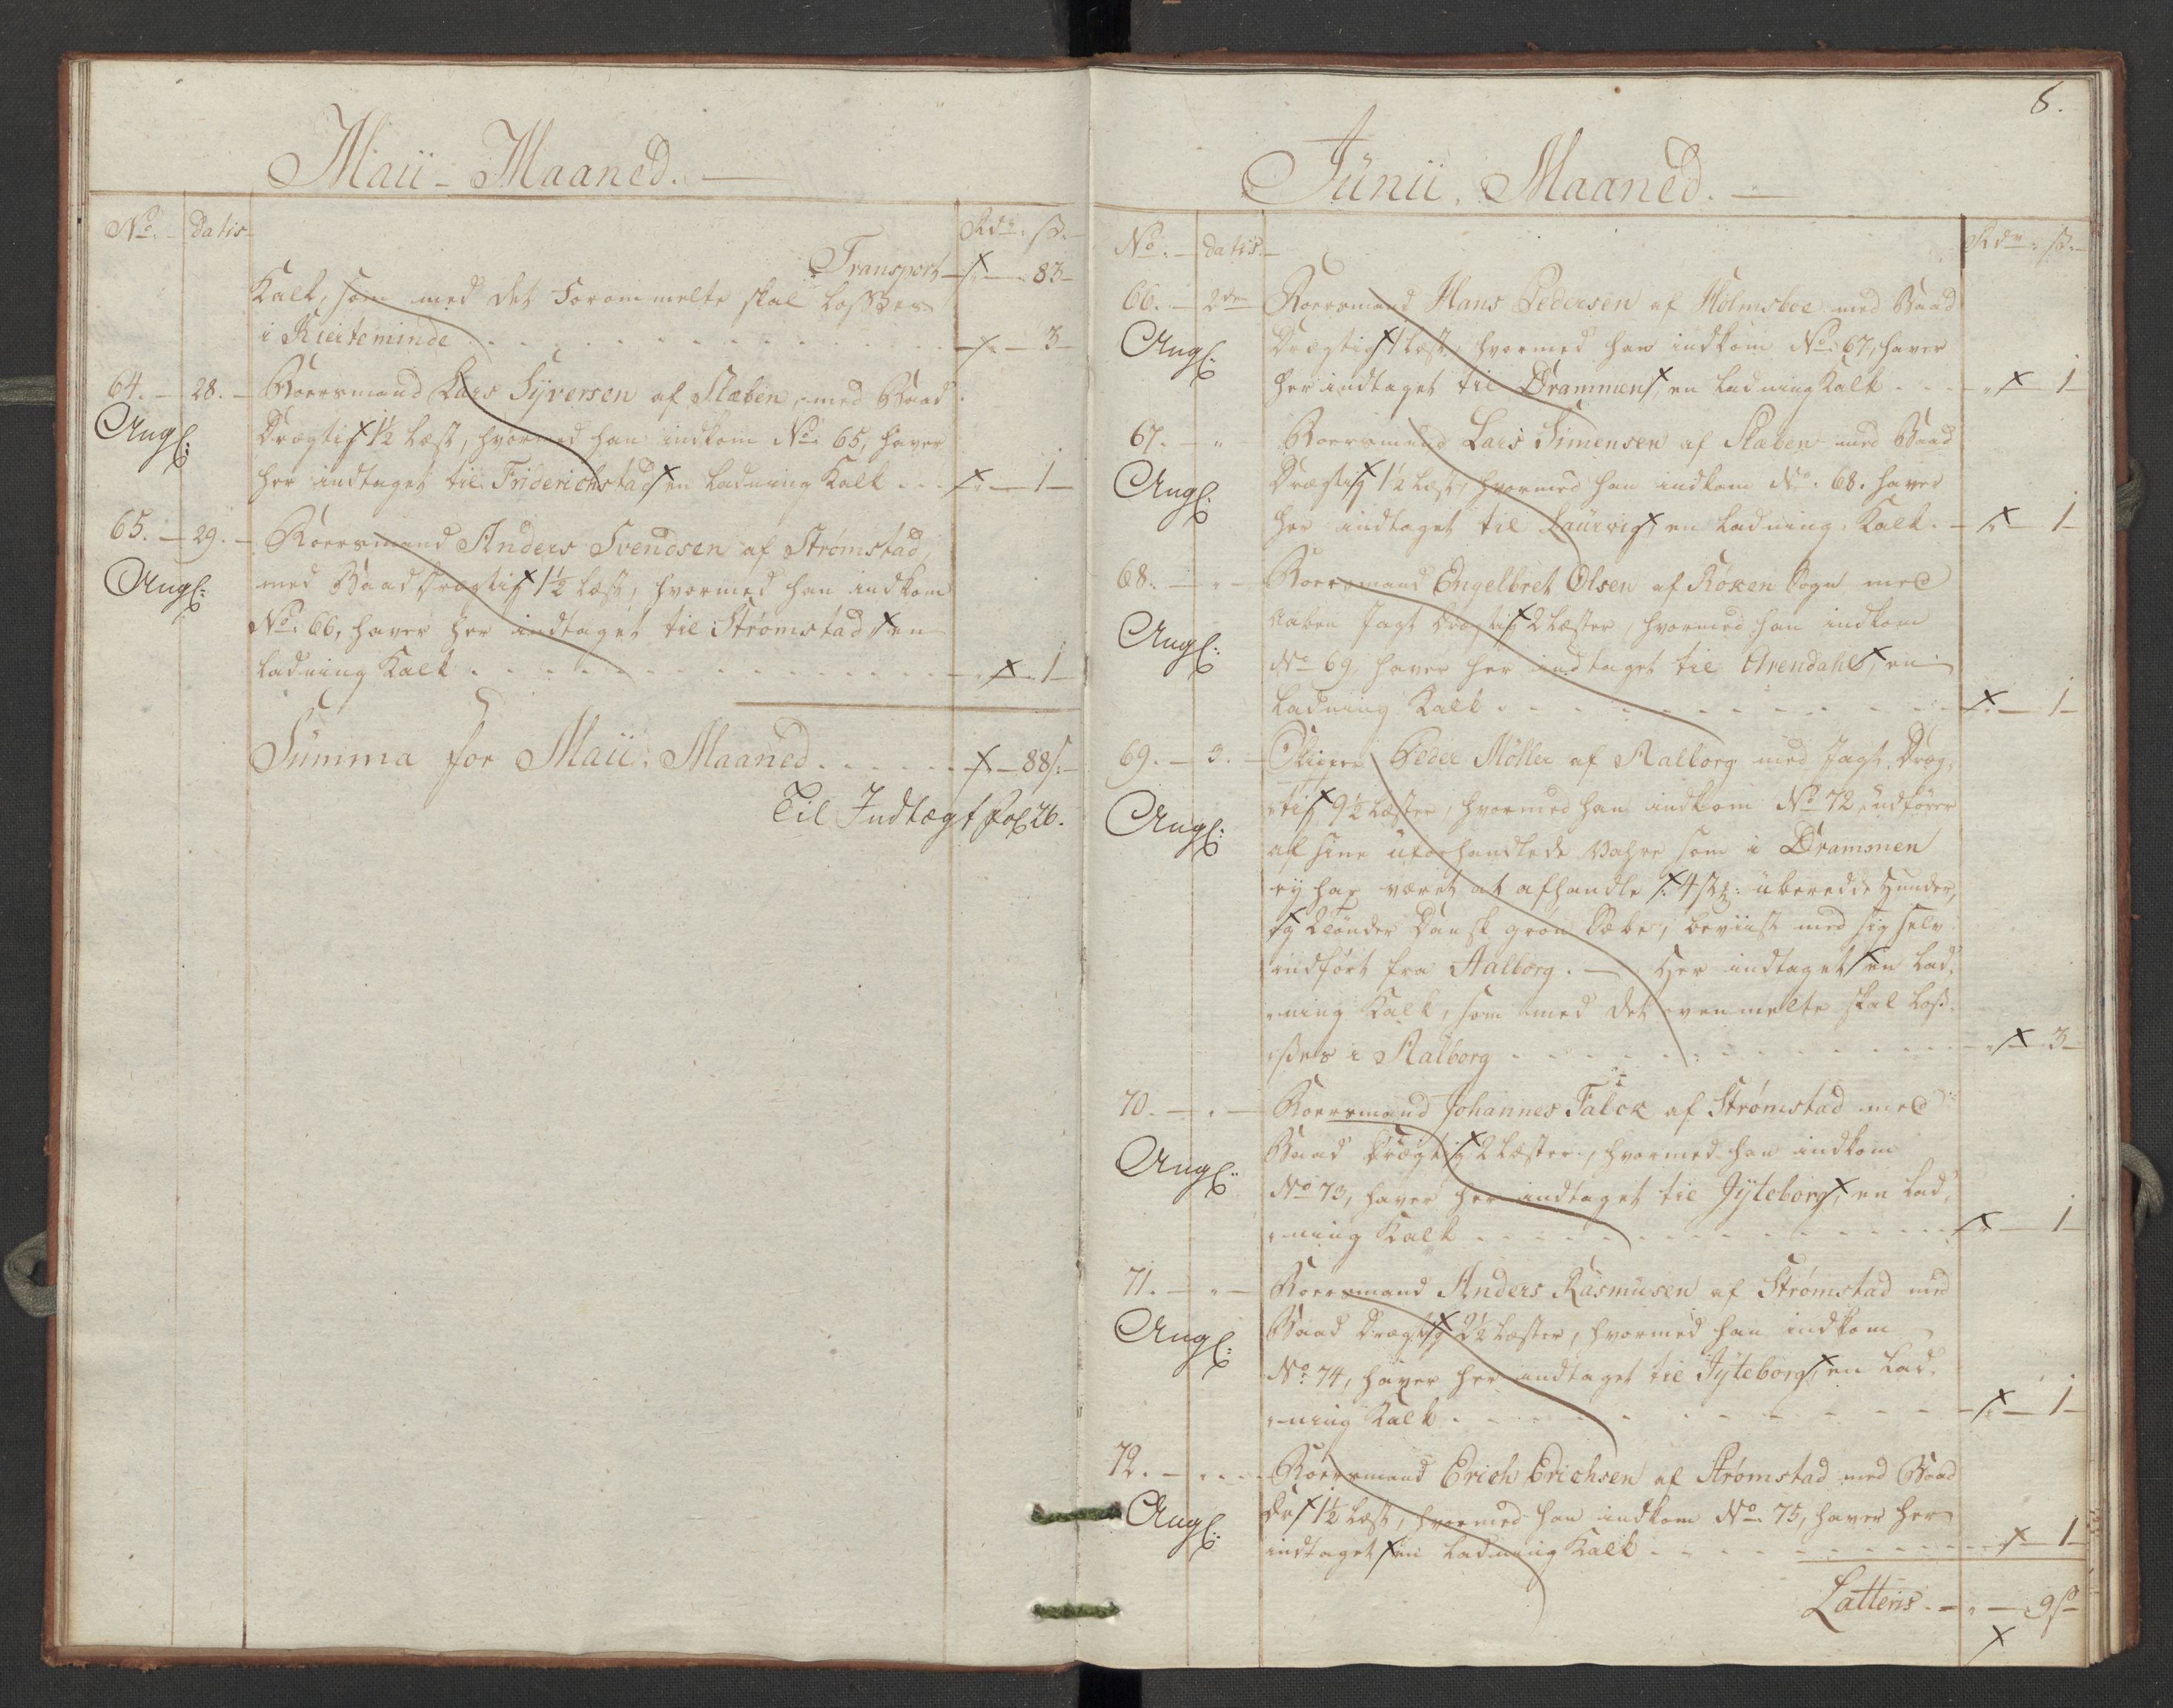 Maii - Maaned. —
No. - Datis - Rdr. ß.
Transport - 83 -
Kalk, som med det Forommelte skal lossses
i Kierteminde . . . . . - 3 -
64. - 28. - Roersmand Lars Syversen af Slæben, med Baad
Angl: Drægtig 1½ Læst, hvormed han indkom No. 65, haver
her indtaget til Friderichstad en Ladning Kalk . . . - 1 -
65. - 29. - Roersmand Anders Svendsen af Strømstad,
Angl: med Baad Drægtig 1½ Læst, hvormed han indkom
No. 66, haver her indtaget til Strømstad en
Ladning Kalk . . . . . - 1 -
Summa for Maii: Maaned . . . . . - 88 ß: -
Til Indtægt fol 26.
8.
Junii. Maaned. —
No. - Datis. - Rdr. ß. -
66. - 2den Roersmand Hans Pedersen af Holmsboe med Baad
Angl: Drægtig 1 Læst, hvormed han indkom No. 67, haver
her indtaget til Drammen, en Ladning Kalk . . . - 1 -
67. - " Roersmand Lars Simensen af Slaben med Baad
Angl: Drægtig 1½ Læst, hvormed han indkom No. 68. haver
her indtaget til Laurvig en Ladning Kalk. - 1 -
68. - " - Roersmand Engelbret Olsen af Röken Sogn med
Angl: aaben Jagt Drægtig 2 Læster, hvormed han indkom
No 69, haver her indtaget til Arendahl, en
Ladning Kalk . . . . . - 1 -
69. - 3. - Skipper Peder Möller af Aalborg med Jagt Dræg-
Angl: tig 9½ Læster, hvormed han indkom No 72, udfører
af sine uforhandlede Vahre som i Drammen
ey har været at afhandle 4 st: uberedde Hunder,
og 2 Tönder Dansk grøn Sæbe, beviist med sig selv
indført fra Aalborg. — Her indtaget en Lad-
ning Kalk, som med det ovenmelte skal loss-
ses i Aalborg . . . . . - 3 -
70. - " - Roersmand Johannes Falck af Strømstad med
Angl: Baad Drægtig 2 Læster, hvormed han indkom
No 73, haver her indtaget til Jyteborg, en Lad-
ning Kalk . . . . . - 1 -
71. - " - Roersmand Anders Rasmusen af Strømstad med
Angl: Baad Drægtig 2½ Læster, hvormed han indkom
No. 74, haver her indtaget til Jyteborg, en Lad-
ning Kalk . . . . . - 1 -
72. - . . . Roersmand Erich Erichsen af Strømstad med Baad
Angl: Dr 1½ Læst, hvormed han indkom No. 75, haver her
indtaget en Ladning Kalk . . . . . - 1 -
Latteris. - " - 9 ß